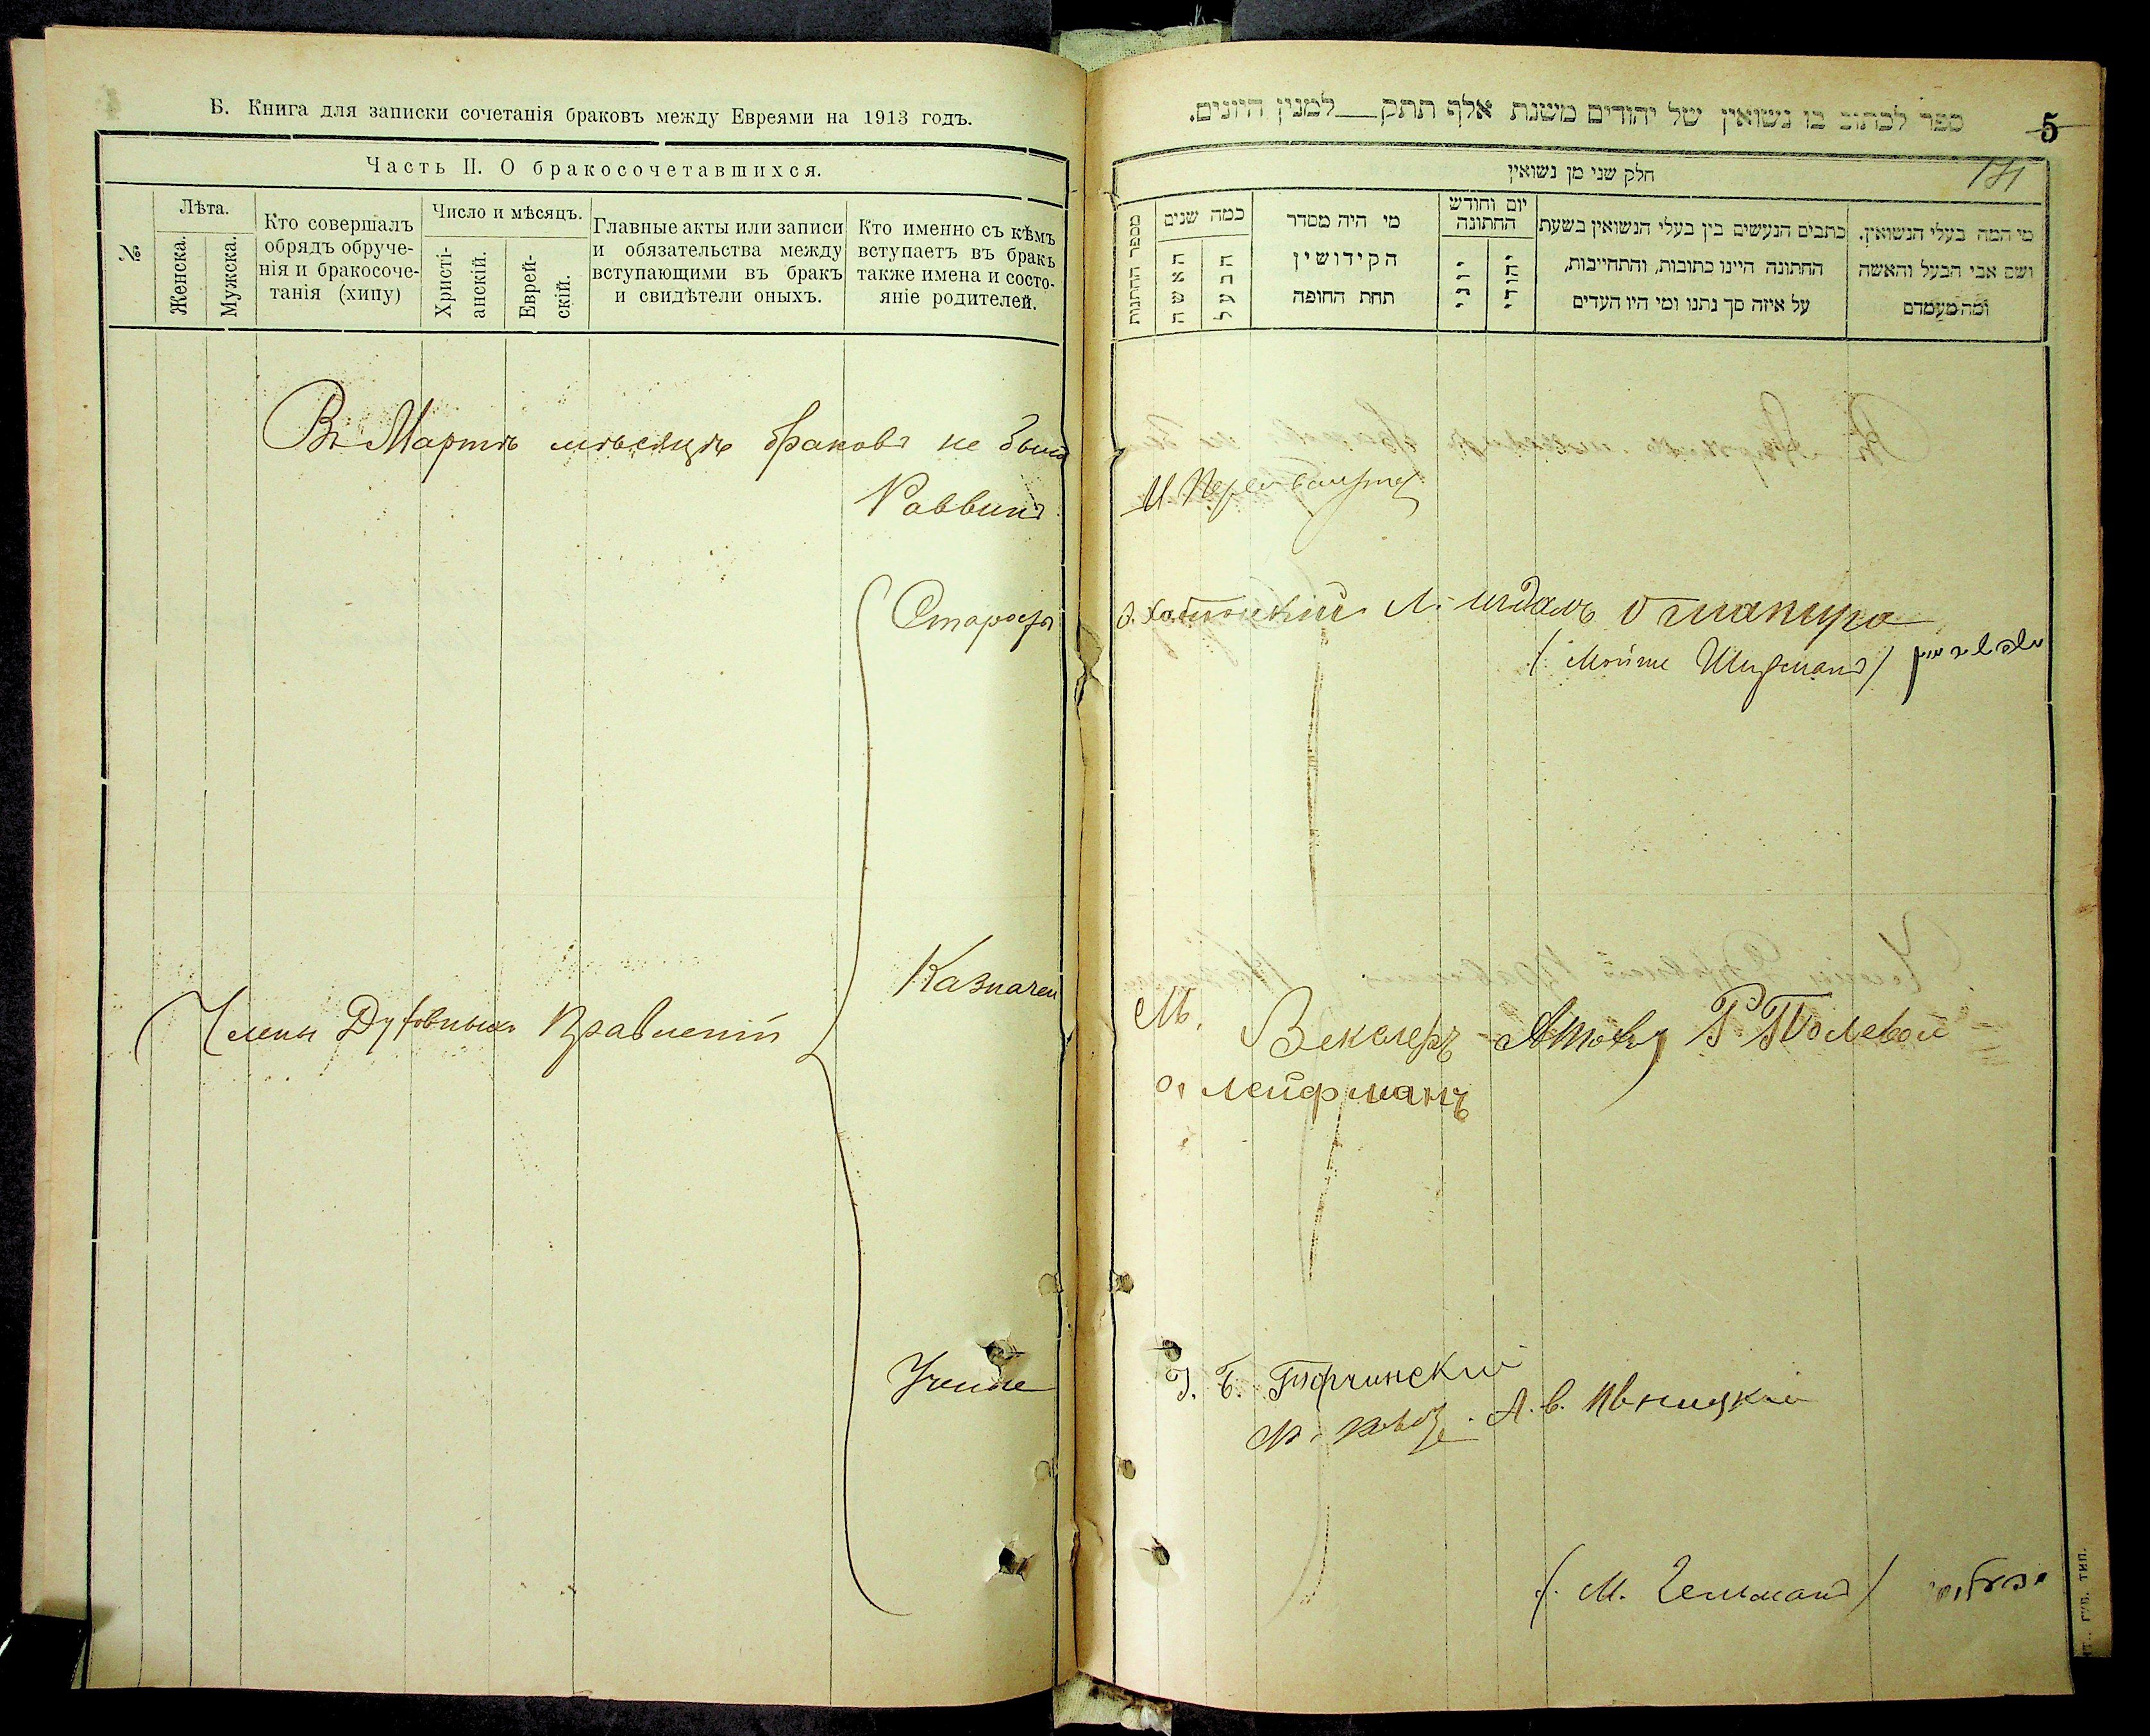 Б. Книга для записки сочетанія браковъ между Евреями на 1913 годъ.
Часть II. О бракосочетавшихся.
№
Лѣта.
Женска.
Мужска.
Кто совершалъ
обрядъ обруче-
нія и бракосоче-
танія (хипу)
Число и мѣсяцъ.
Христі-
анскій.
Еврей-
скій.
Главные акты или записи
и обязательства между
вступающими въ бракъ
и свидѣтели оныхъ.
Кто именно съ кѣмъ
вступаетъ въ бракъ
также имена и состо-
яніе родителей.
Въ Мартѣ мѣсяцѣ браковъ не было
Раввинъ
Старосты
Казначеи
Члены Духовныхъ Правленій
Ученые
ספר לכתוב בו נשואין של יהודים משנת אלף תתק למנין היונים.
5
חלק שני מן נשואין
מספר החתנות
כמה שנים
האשה
הבעל
מי היה מסדר
הקידושין
תחת החופה
יום וחודש
החתונה
יוני
יהודי
כתבים הנעשים בין בעלי הנשואין בשעת
החתונה היינו כתובות, והתחייבות,
על איזה סך נתנו ומי היו העדים
מי המה בעלי הנשואין.
ושם אבי הבעל והאשה
ומה מעמדם
О шапиро
(Мойше Шифманъ)
М. Векслеръ
Р. Полевой
О. Лейфманъ
Г. Б.
А. В. Ивницкій
(М. Гельманъ)
ГУБ. ТИП.